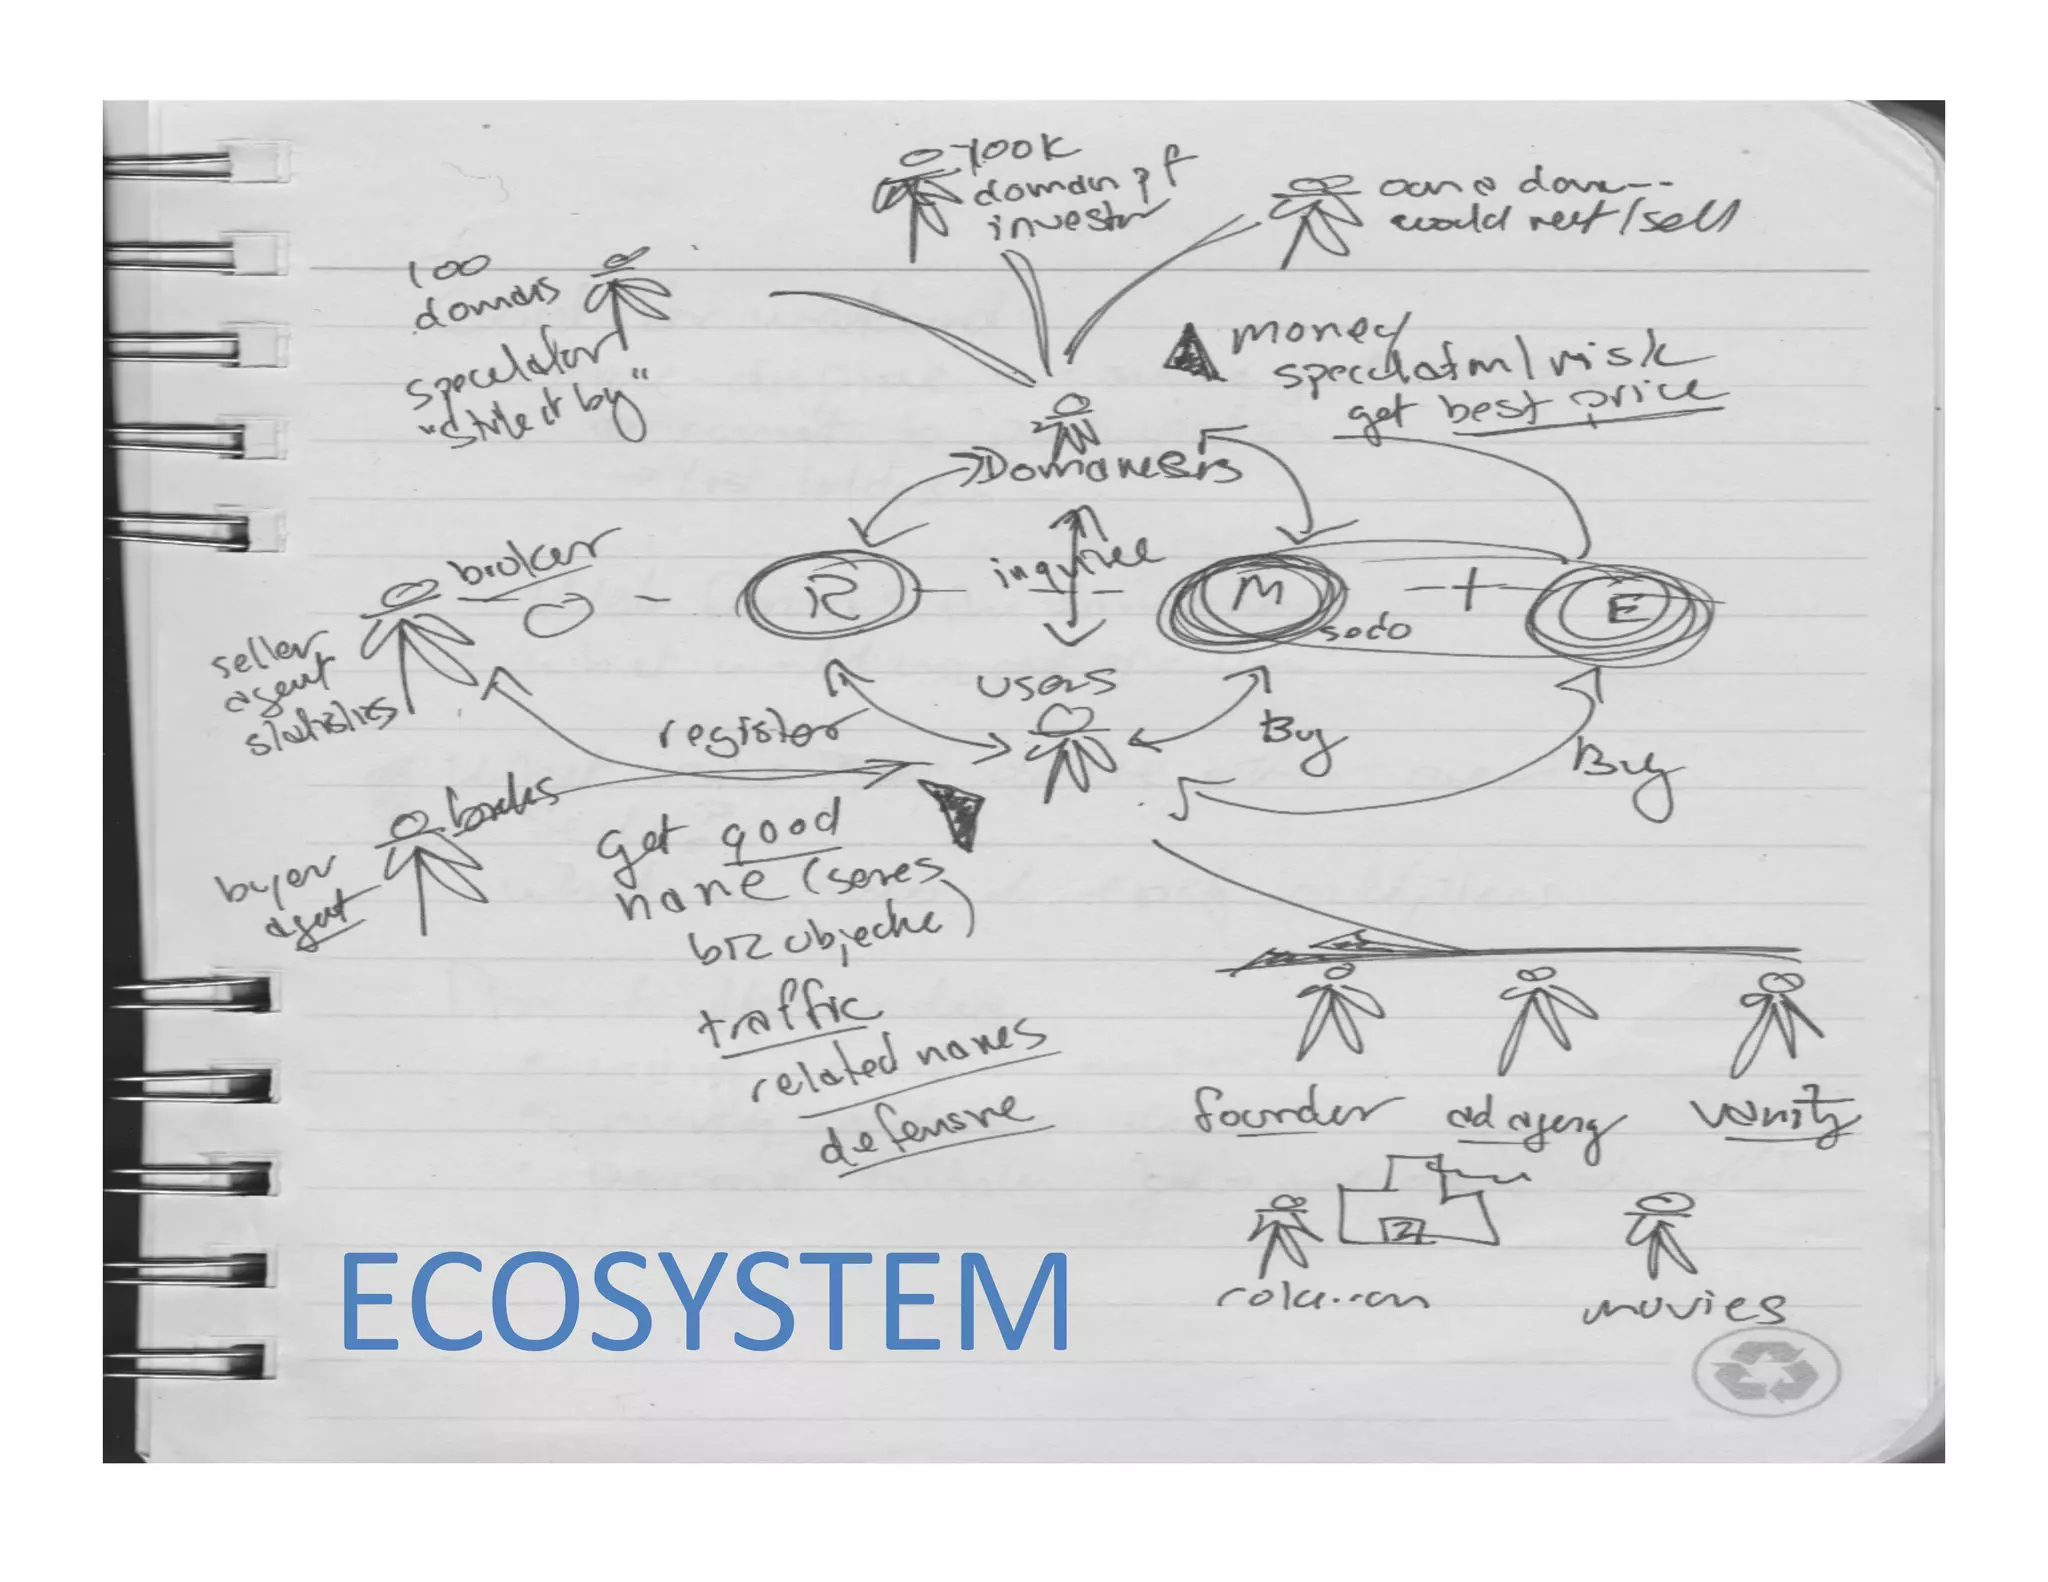 domain
investor
would rent/sell
100
domains
speculator
money
speculatin/risk
get best price
Domainers
broker
R
inquiree
M
+
E
sedo
seller
agent
users
register
Buy
Buy
buyer
agent
get good
name (serves
biz objective)
traffic
related names
defensive
founder
ad agency
vanity
movies
ECOSYSTEM